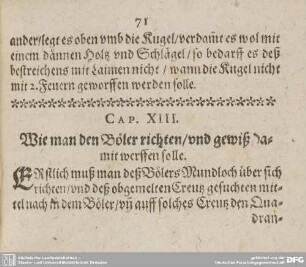 71
ander/legt es oben vmb die Kugel/verdam̃t es wol mit
einem dännen Holtz vnd Schlägel/so bedarff es deß
bestreichens mit Laimen nicht/wann die Kugel nicht
mit 2. Feuern geworffen werden solle.
CAP. XIII.
Wie man den Böler richten/vnd gewiß da-
mit werffen solle.
ERstlich muß man deß Bölers Mundloch über sich
richten/vnd deß obgemelten Creutz gesuchten mit-
tel nach in dem Böler/vñ auff solches Creutz den Qua-
dran-